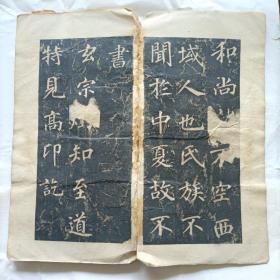 和尚諱不空西
域人也氏族不
聞於中夏故不
書
玄宗燭知至道
特見高仰訖